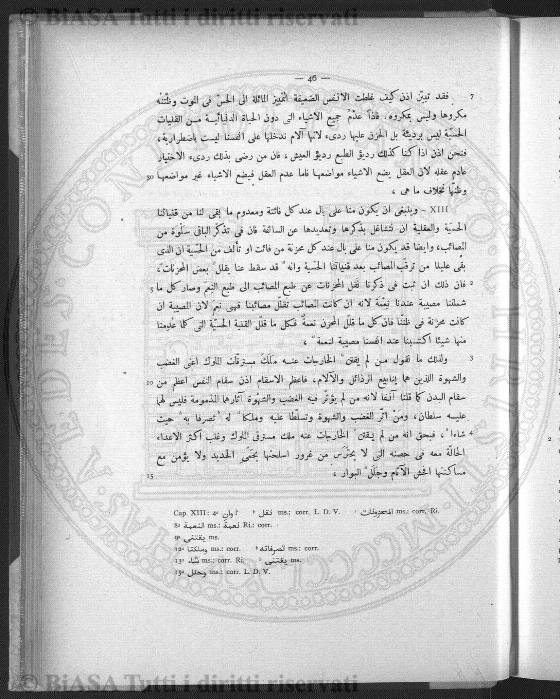 © BiASA Tutti i diritti riservati
— 46 —
فقد تبيّن اذن كيف غلطت الانفس الضعيفة التمييز المائلة الى الحسّ فى الموت وظنّتْه 7
مكروها وليس بمكروه، فاذا عدم جميع الاشياء التى دون الحياة الدنيائيّة من القنيات
الحسّيّة ليس برديئة بل الحزن عليها ردىء لانها آلام ندخلها على انفسنا ليست باضطرارية،
فنحن اذن اذا كنا كذلك رديؤ الطبع رديؤ العيش، فان من رضى بذلك ردىء الاختيار
عادم عقله لان العقل يضع الاشياء مواضعها فاما عدم العقل فيضع الاشياء غير مواضعها 20
وظنّها بخلاف ما هى،
XIII – وينبغى ان يكون منا على بال عند كل فائتة ومعدوم ما بقى لنا من قنياتنا
الحسّية والعقلية ان نتشاغل بذكرها وتعديدها عن السالفة فان فى تذكّر الباقى سلوة من
المصائب، وايضا قد يكون منا على بال عند كل محزنة من فائت او تألف من الحسّية ان الذى
بقى علينا من ترقّب المصائب بعد قنياتنا الحسّية وانه قد سقط عنا بقلل بعض المحزنات،
فان ذلك ان ثبت فى ذكرنا نقل المحزنات عن طبع المصائب الى طبع النعم وصار كل ما 2 5
شملنا مصيبة عندنا نعمة لانه ان كانت المصائب تقلّل مصائبنا فهى نعم لان المصيبة ان
كانت محزنة فى ظنّنا فان كل ما قلّل المحزن نعمة فكل ما قلل القنية الحسّيّة التى كلما عدمنا
منها شيئا اكتسبنا عند انفسنا مصيبة لنعمة،
ولذلك ما نقول من لم يقتن الخارجات عنه ملك مسترقّات الملوك اعنى الغضب 3
والشهوة اللذين هما ينابيع الرذائل والآلام، فاعظم الاسقام اذن سقام النفس اعظم من 10
سقام البدن كما قلنا آنفا لانه من لم يؤثّر فيه الغضب والشهوة آثارها المذمومة فليس لهما
عليه سلطان، ومن اثّر الغضب والشهوة وتسلّطا عليه وملكا له تصرفا به حيث
شاءا، فبحق انه من لم يقتن الخارجات عنه ملك مسترقى الملوك وغلب اكثر الاعداء 4
الحالّة معه فى حصنه التى لا يحترس من غرور اسلحتها بجنّى الحديد ولا يؤمن مع
مساكنتها افحش الآثام وجلل البوار، 15
Cap. XIII: 4ᵃ اوان ᵇ نقل ms.: corr. L. D. V. ᶜ المحزونات ms.: corr. Ri.
8ᵃ النعمة ms.: نعمة Ri.: corr.
9ᵃ يقتنى ms.
12ᵃ وملكتا ms.: corr. ᵇ تصرفاته ms.: corr.
13ᵃ شاء ms.: corr. Ri. ᵇ يقتنى ms.
15ᵃ وجلل ms.: corr. L. D. V.
© BiASA Tutti i diritti riservati